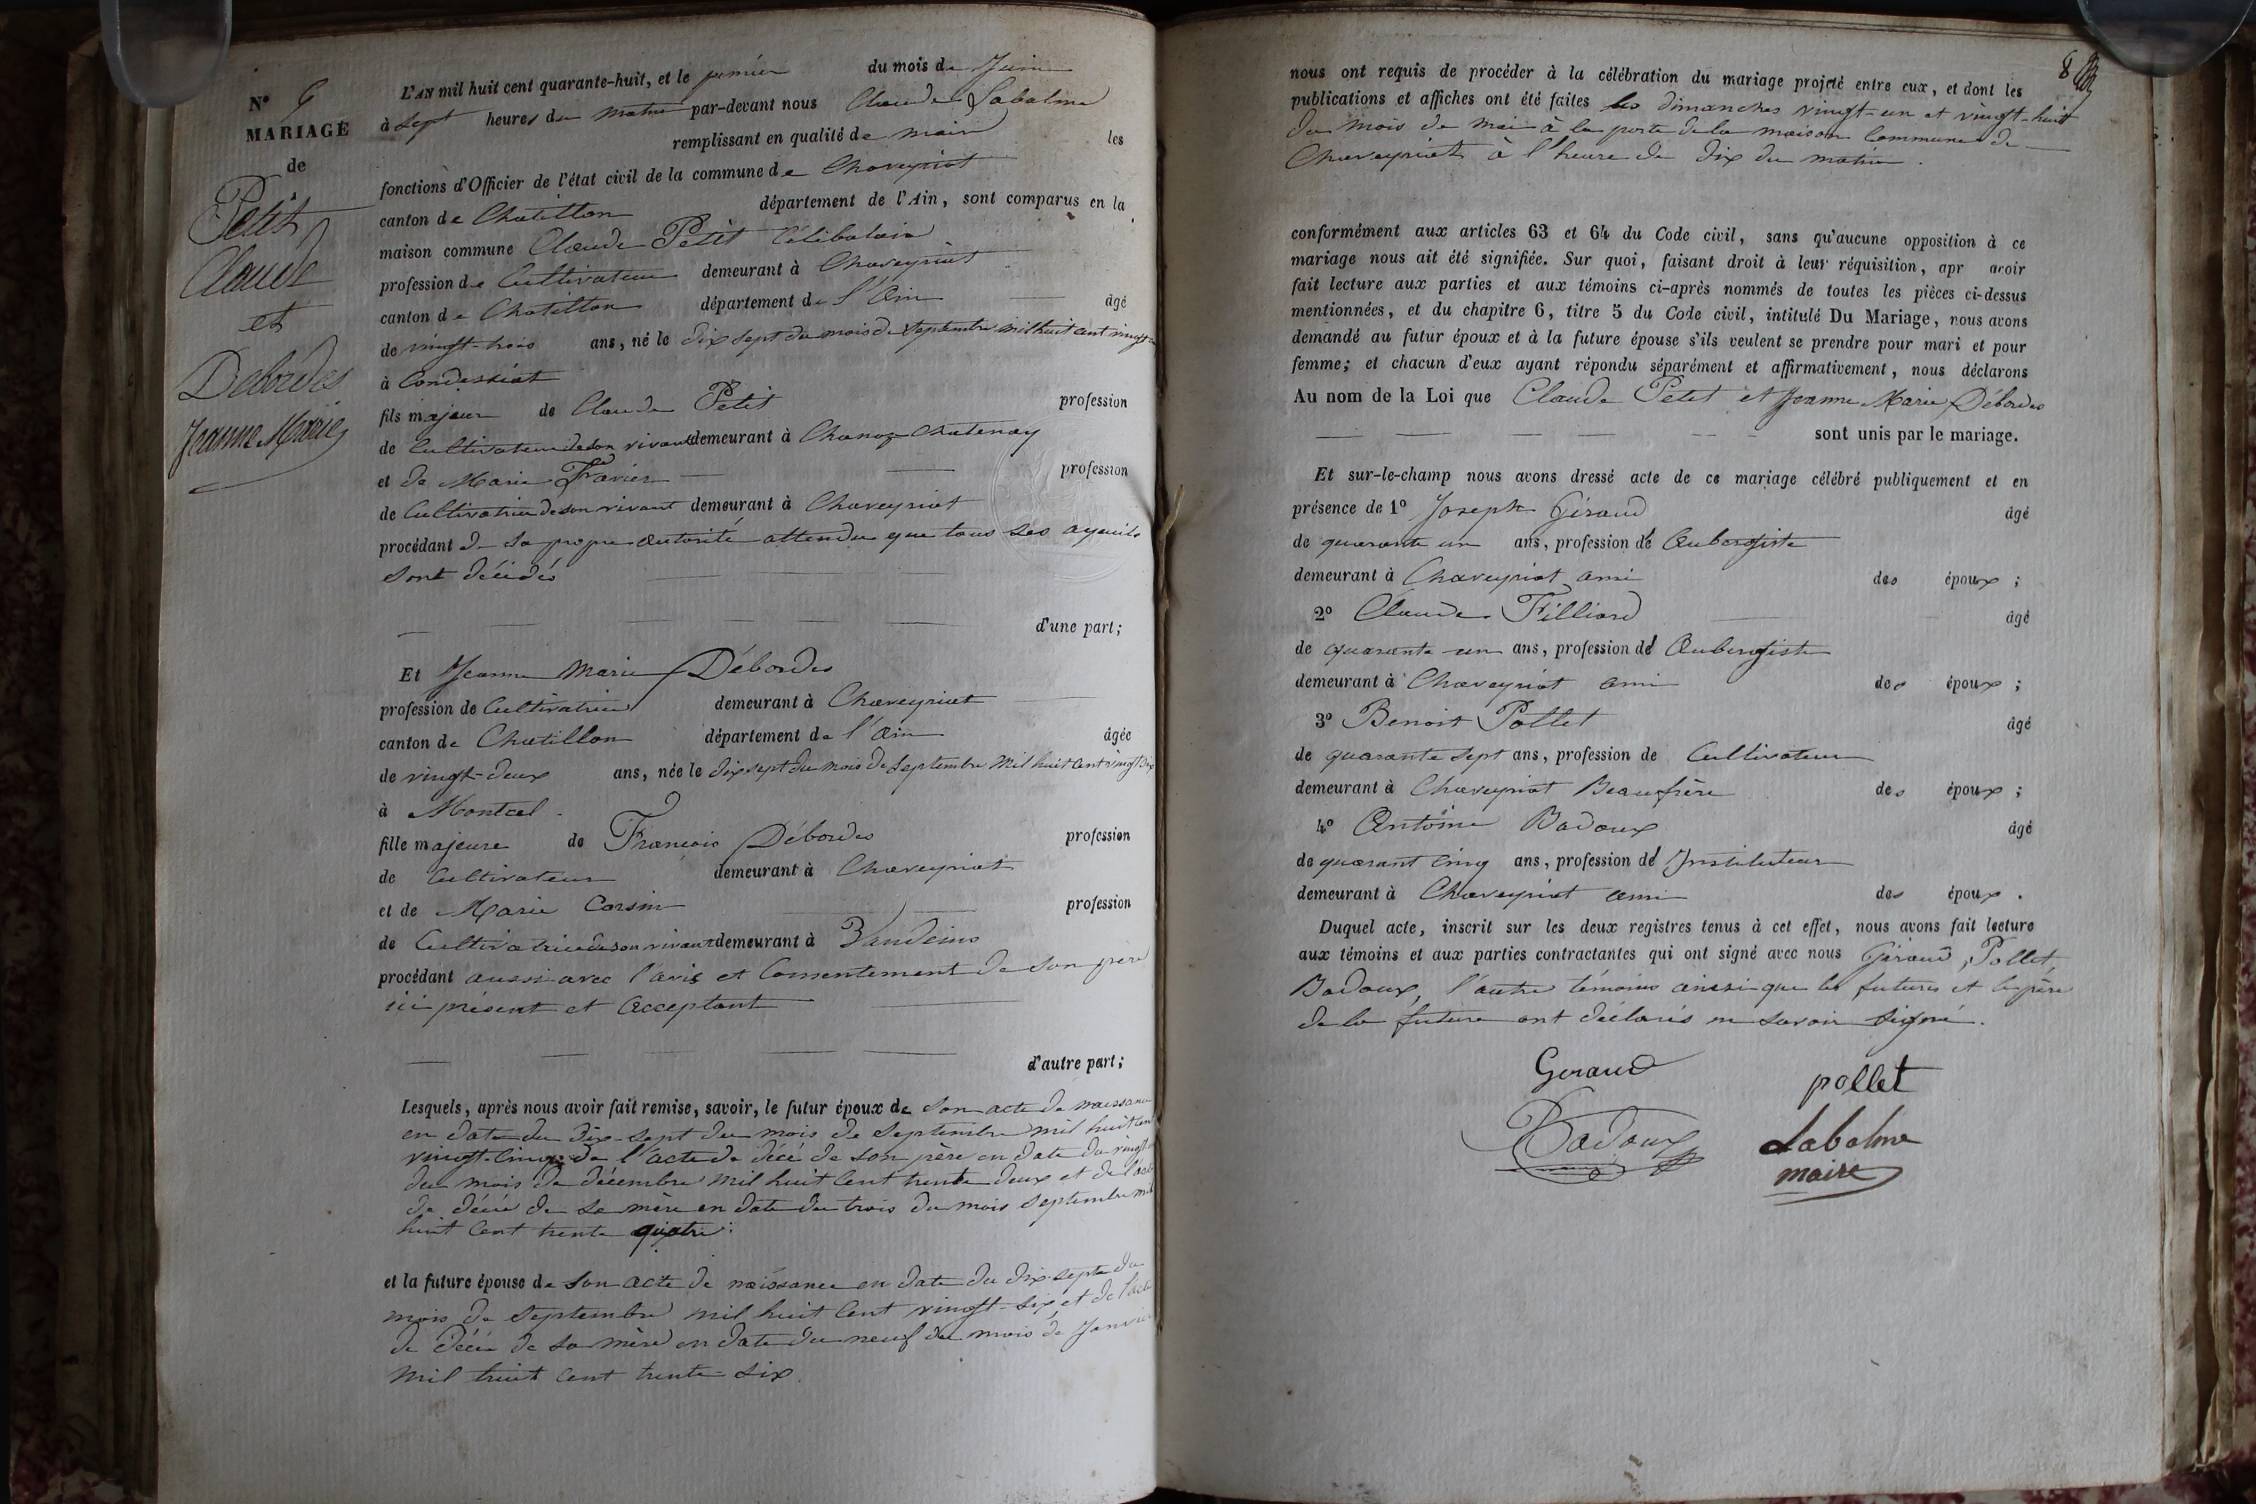 N° 6
MARIAGE
de
Petit
Claude
et
Débordes
Jeanne Marie
L'AN mil huit cent quarante-huit, et le premier du mois de Juin
à sept heures du matin par-devant nous Claude Labalme
remplissant en qualité de maire les
fonctions d'Officier de l'état civil de la commune de Chaveyriat
canton de Chatillon département de l'Ain, sont comparus en la
maison commune Claude Petit Célibataire
profession de Cultivateur demeurant à Chaveyriat
canton de Chatillon département de l'Ain âgé
de vingt-trois ans, né le dix sept du mois de septembre mil huit cent vingt
à Condessiat
fils majeur de Claude Petit profession
de Cultivateur de son vivant demeurant à Chanoz Chatenay
et de Marie Favier profession
de Cultivatrice de son vivant demeurant à Chaveyriat
procédant de sa propre autorité attendu que tous ses ayeuls
sont décédés
d'une part;
Et Jeanne Marie Débordes
profession de Cultivatrice demeurant à Chaveyriat
canton de Chatillon département de l'Ain âgée
de vingt-deux ans, née le dix sept du mois de septembre mil huit cent vingt six
à Montcel
fille majeure de François Débordes profession
de Cultivateur demeurant à Chaveyriat
et de Marie Corsin profession
de Cultivatrice de son vivant demeurant à Vandeins
procédant aussi avec l'avis et Consentement de son père
ici présent et acceptant
d'autre part;
Lesquels, après nous avoir fait remise, savoir, le futur époux de son acte de naissance
en date du dix-sept du mois de septembre mil huit cent
vingt-cinq; de l'acte de décé de son père en date du vingt
du mois de décembre mil huit cent trente deux et de l'acte
de décé de sa mère en date du trois du mois septembre mil
huit cent trente quatre;
et la future épouse de son acte de naissance en date du dix-septe du
mois de septembre mil huit cent vingt-six, et de l'acte
de décé de sa mère en date du neuf du mois de Janvier
mil huit cent trente-six.
8
nous ont requis de procéder à la célébration du mariage projeté entre eux, et dont les
publications et affiches ont été faites les dimanches vingt-un et vingt-huit
du mois de mai à la porte de la maison Commune de
Chaveyriat à l'heure de dix du matin.
conformément aux articles 63 et 64 du Code civil, sans qu'aucune opposition à ce
mariage nous ait été signifiée. Sur quoi, faisant droit à leur réquisition, apr avoir
fait lecture aux parties et aux témoins ci-après nommés de toutes les pièces ci-dessus
mentionnées, et du chapitre 6, titre 5 du Code civil, intitulé Du Mariage, nous avons
demandé au futur époux et à la future épouse s'ils veulent se prendre pour mari et pour
femme; et chacun d'eux ayant répondu séparément et affirmativement, nous déclarons
Au nom de la Loi que Claude Petit et Jeanne Marie Débordes
sont unis par le mariage.
Et sur-le-champ nous avons dressé acte de ce mariage célébré publiquement et en
présence de 1° Joseph Géraud âgé
de quarante un ans, profession d'Aubergiste
demeurant à Chaveyriat ami des époux;
2° Claude Filliard âgé
de quarante-un ans, profession d'Aubergiste
demeurant à Chaveyriat ami des époux;
3° Benoit Pollet âgé
de quarante sept ans, profession de Cultivateur
demeurant à Chaveyriat Beaufrère des époux;
4° Antoine Badoux âgé
de quarant cinq ans, profession d'Instituteur
demeurant à Chaveyriat ami des époux.
Duquel acte, inscrit sur les deux registres tenus à cet effet, nous avons fait lecture
aux témoins et aux parties contractantes qui ont signé avec nous Géraud, Pollet,
Badoux, l'autre témoins ainsi que les futures et le père
de la future ont déclarés ne savoir signé.
Geraud
pollet
Badoux
Labalme
maire